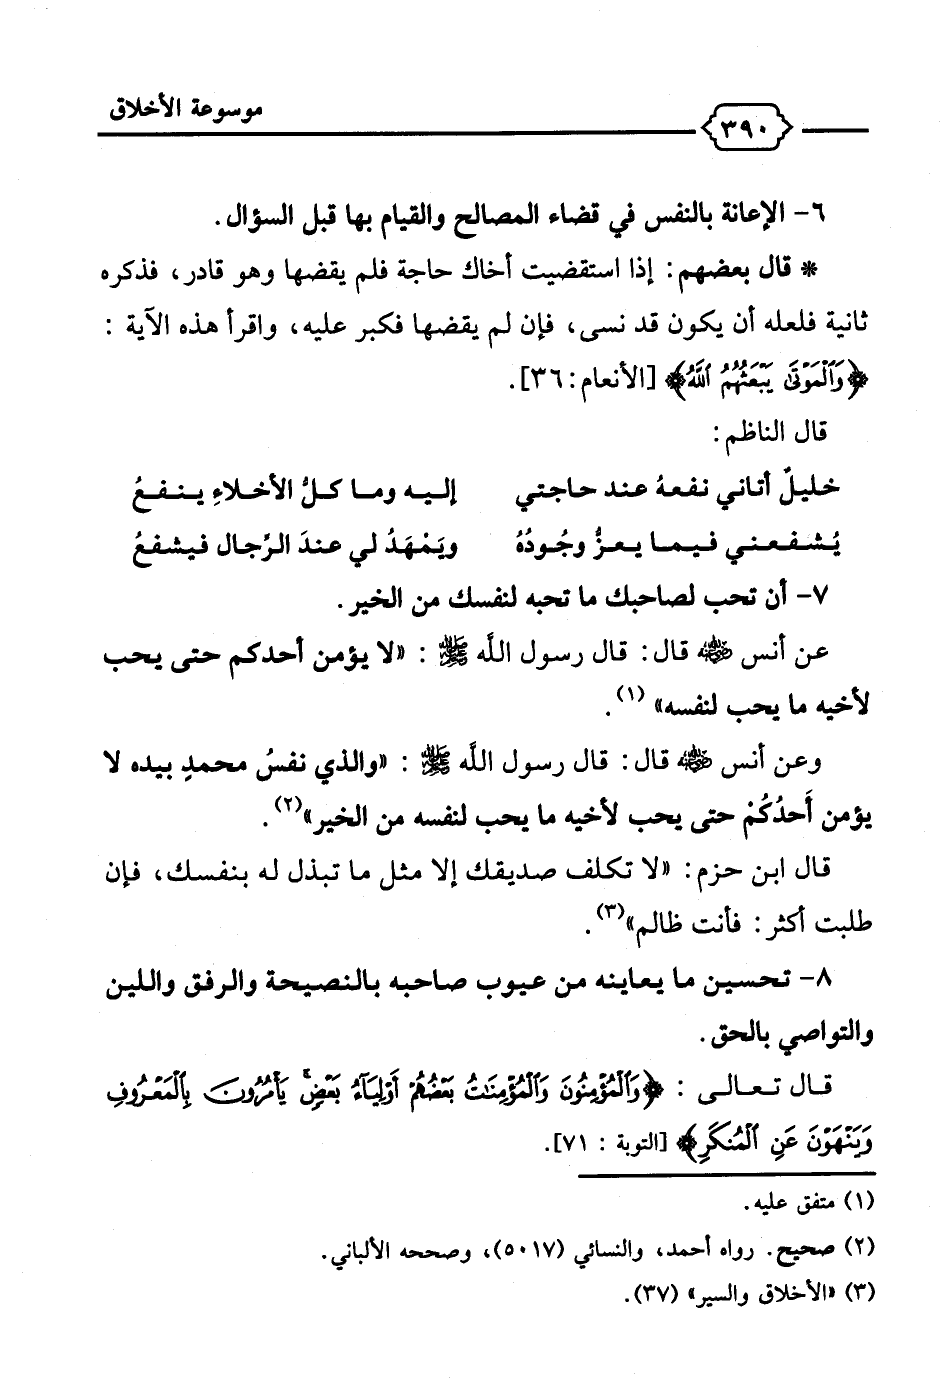 موسوعة الأخلاق
٣٩٠
٦- الإعانة بالنفس في قضاء المصالح والقيام بها قبل السؤال.
* قال بعضهم: إذا استقضيت أخاك حاجة فلم يقضها وهو قادر، فذكره
ثانية فلعله أن يكون قد نسى، فإن لم يقضها فكبر عليه، واقرأ هذه الآية :
﴿وَٱلْمَوْتَىٰ يَبْعَثُهُمُ ٱللَّهُ﴾ [الأنعام: ٣٦].
قال الناظم:
خليلٌ أتاني نفعهُ عند حاجتي إليه وما كلُّ الأخلاءِ ينفعُ
يُشفعني فيما يعزُّ وجُودُهُ ويَمْهَدُ لي عندَ الرِّجال فيشفعُ
٧- أن تحب لصاحبك ما تحبه لنفسك من الخير.
عن أنس رضي الله عنه قال: قال رسول اللَّه ﷺ : «لا يؤمن أحدكم حتى يحب
لأخيه ما يحب لنفسه» (١).
وعن أنس رضي الله عنه قال: قال رسول اللَّه ﷺ : «والذي نفسُ محمدٍ بيده لا
يؤمن أَحدُكُمْ حتى يحب لأخيه ما يحب لنفسه من الخير»(٢).
قال ابن حزم: «لا تكلف صديقك إلا مثل ما تبذل له بنفسك، فإن
طلبت أكثر: فأنت ظالم»(٣).
٨- تحسين ما يعاينه من عيوب صاحبه بالنصيحة والرفق واللين
والتواصي بالحق.
قال تعالى : ﴿وَٱلْمُؤْمِنُونَ وَٱلْمُؤْمِنَٰتُ بَعْضُهُمْ أَوْلِيَآءُ بَعْضٍۚ يَأْمُرُونَ بِٱلْمَعْرُوفِ
وَيَنْهَوْنَ عَنِ ٱلْمُنكَرِ﴾ [التوبة : ٧١].
(١) متفق عليه.
(٢) صحيح. رواه أحمد، والنسائي (٥٠١٧)، وصححه الألباني.
(٣) «الأخلاق والسير» (٣٧).